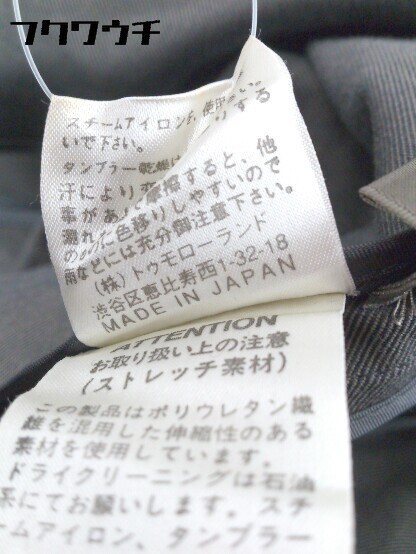 フクワウチ
スチームアイロンは、使用
いで下さい。
タンブラー乾燥は
汗により変 摩擦すると、他
事があ
濡れた色移りしやすいので
雨などには充分御注意下さい。
(株)トゥモローランド
渋谷区恵比寿西1-32-18
MADE IN JAPAN
ATTENTION
お取り扱い上の注意
(ストレッチ素材)
この製品はポリウレタン繊
維を混用した伸縮性のある
素材を使用しています。
ドライクリーニングは石油
系にてお願いします。スチ
ームアイロン、タンブラー